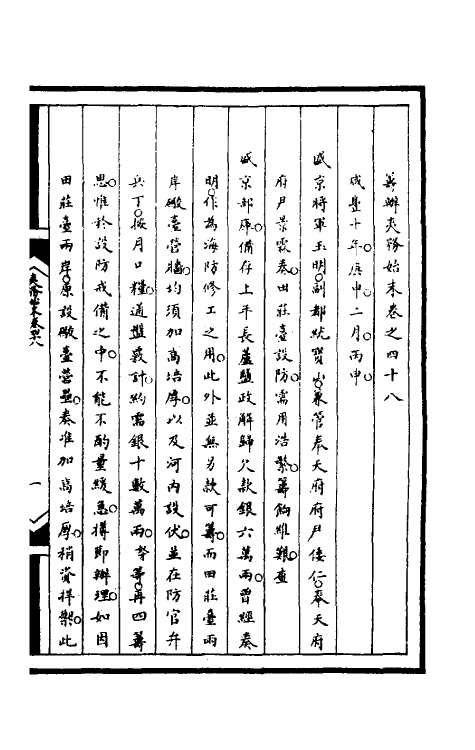 籌辦夷務始末卷之四十八
咸豐十年。庚申二月。丙申。
盛京將軍玉明。副都統寶山。兼管奉天府府尹倭仁。奉天府
府尹景霖。奏。田莊臺設防。需用浩繁。籌餉維艱。查
盛京部庫。備存上年長蘆鹽政解歸欠款銀六萬兩。曾經奏
明。作為海防修工之用。此外並無另款可籌。而田莊臺兩
岸礮臺營牆。均須加高培厚。以及河內設伏。並在防官弁
兵丁。按月口糧。通盤覈計。約需銀十數萬兩。臣等再四籌
思。惟於設防戒備之中。不能不酌量緩急。擇即辦理。如因
田莊臺兩岸。原設礮臺營壘。奏准加高培厚。稍資捍禦。此
夷務始末卷四八
一